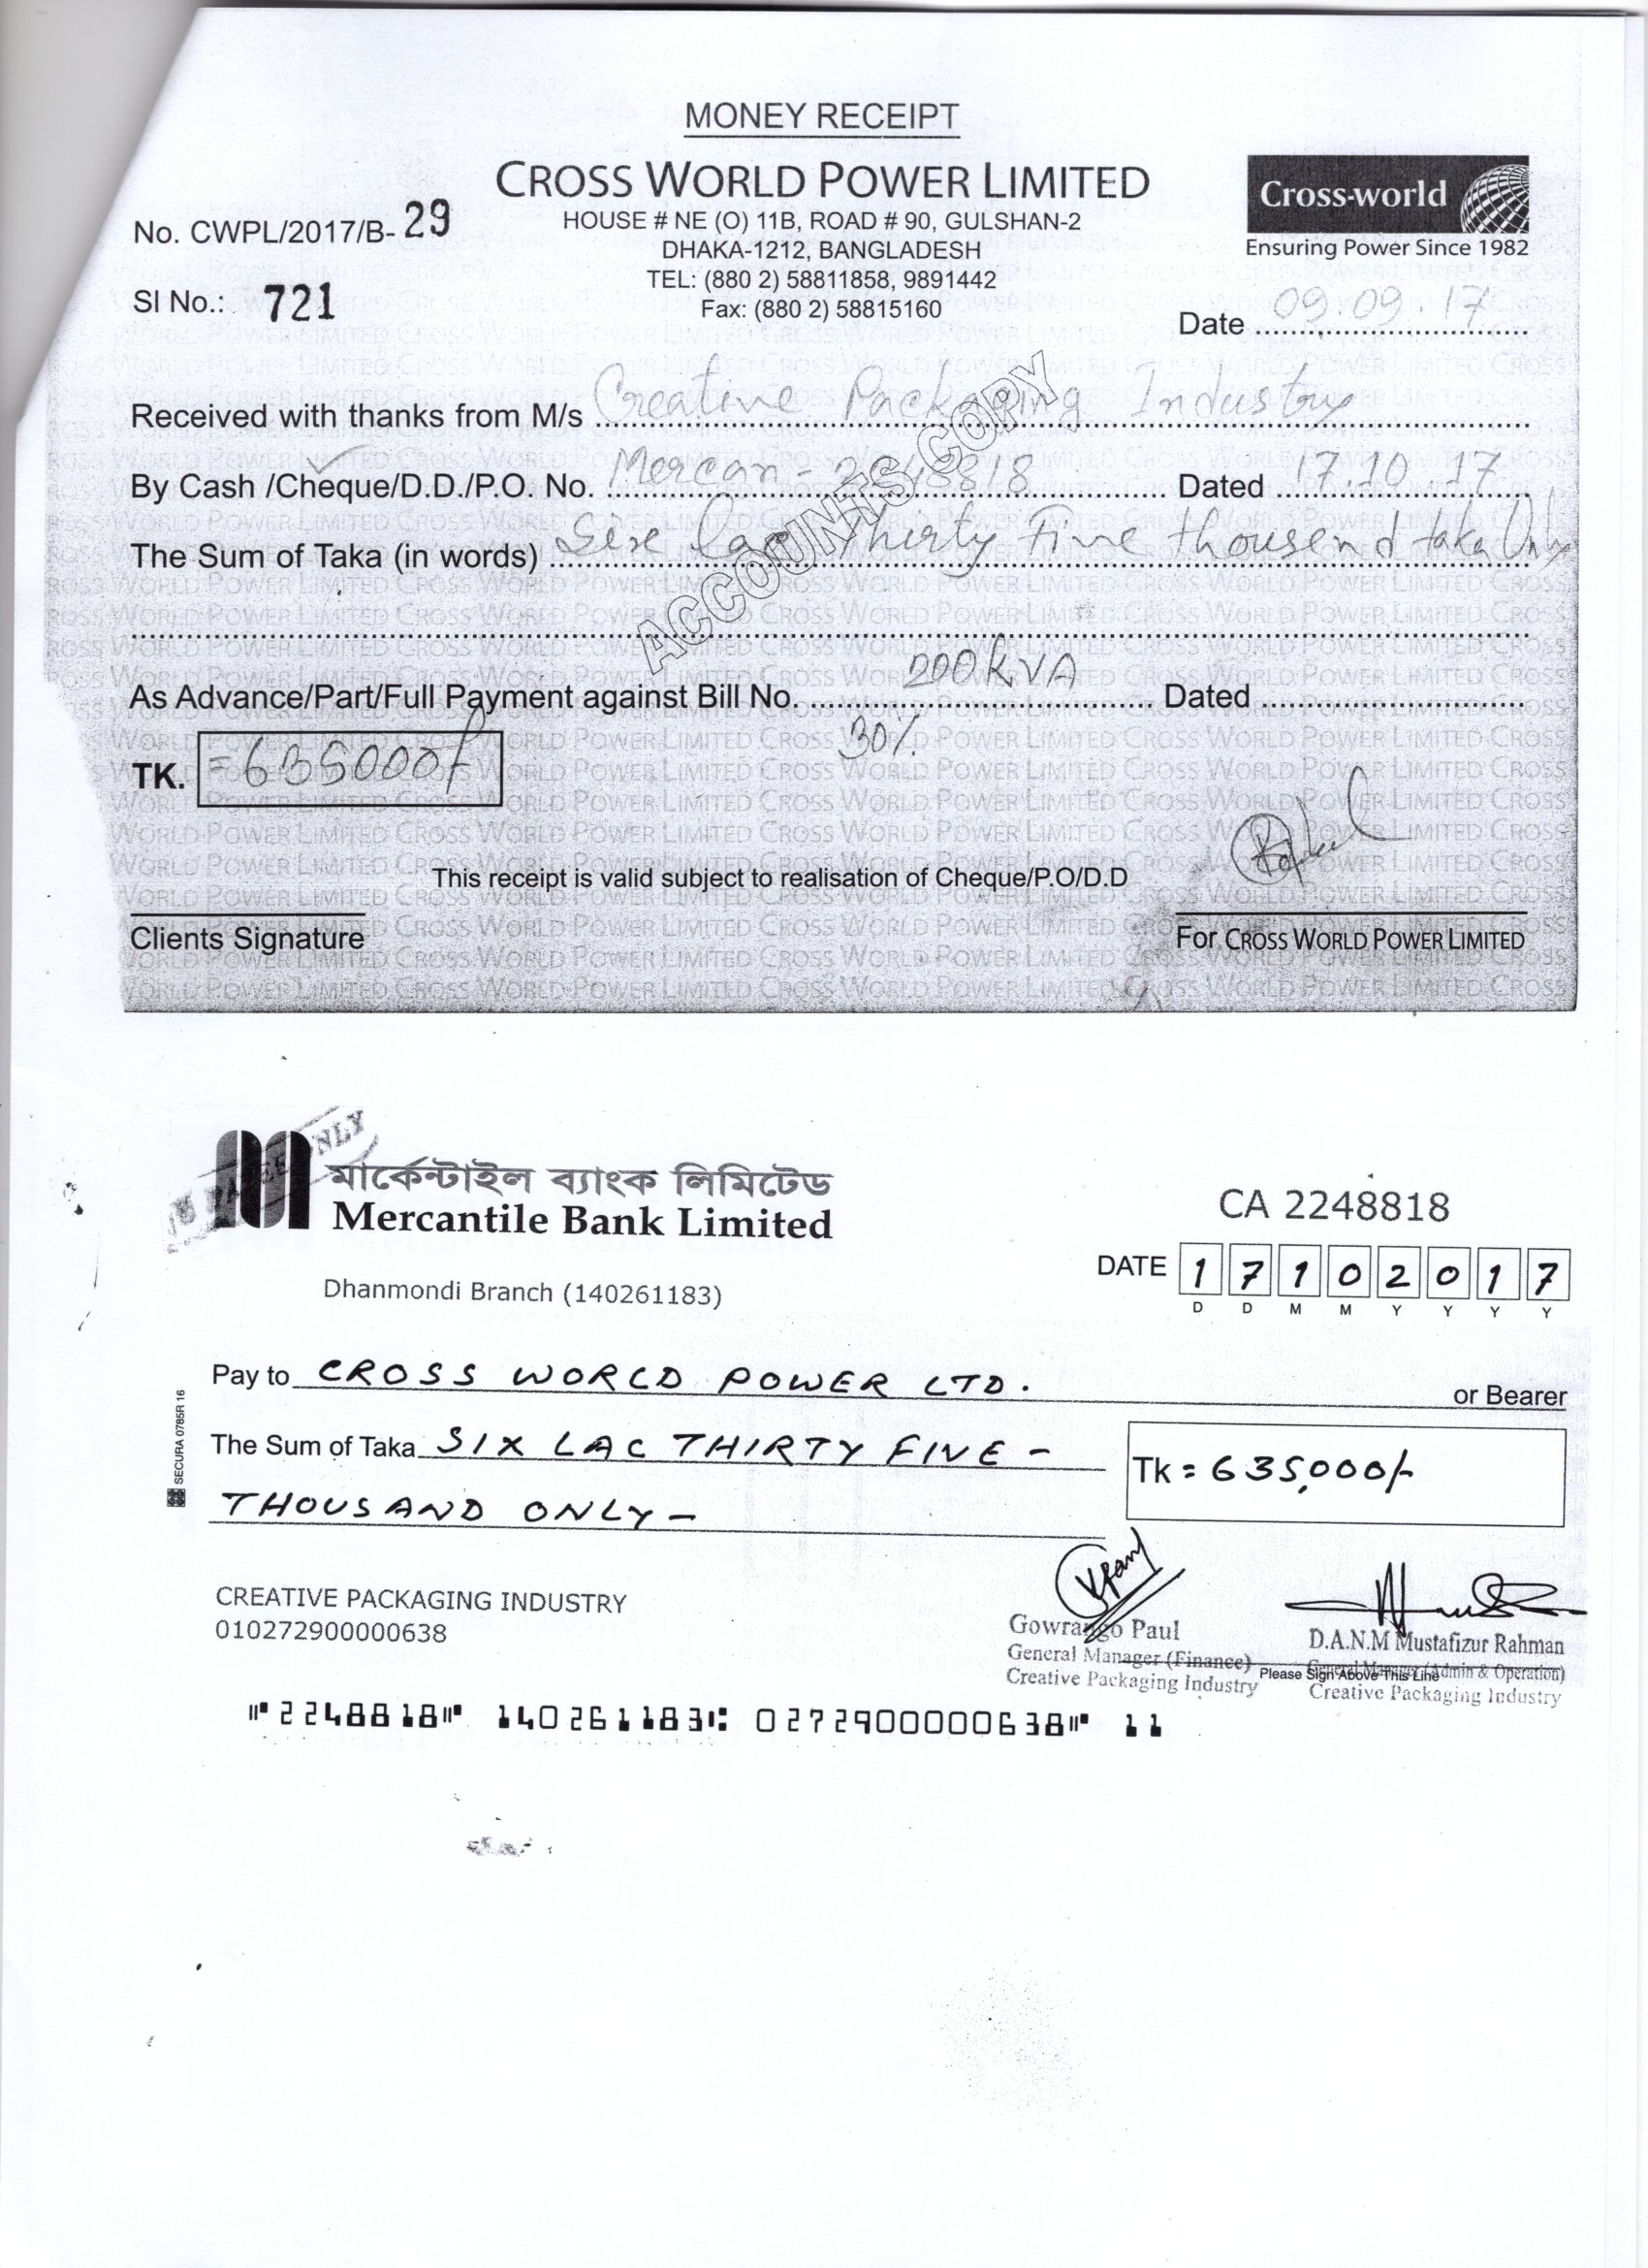 MONEY RECEIPT
CROSS WORLD POWER LIMITED
HOUSE # NE (O) 11B, ROAD # 90, GULSHAN-2
DHAKA-1212, BANGLADESH
TEL: (880 2) 58811858, 9891442
Fax: (880 2) 58815160
Cross-world
Ensuring Power Since 1982
No. CWPL/2017/B- 29
SI No.: 721
Date 09.09.17
Received with thanks from M/s Creative Packaging Industry
By Cash /Cheque/D.D./P.O. No. Mercan - 2248818 Dated 17.10.17
The Sum of Taka (in words) Six lac Thirty Five thousend taka Only
ACCOUNTS COPY
As Advance/Part/Full Payment against Bill No. 200 kVA Dated
30%
TK. =635000/-
This receipt is valid subject to realisation of Cheque/P.O/D.D
Clients Signature
For CROSS WORLD POWER LIMITED
মার্কেন্টাইল ব্যাংক লিমিটেড
Mercantile Bank Limited
Dhanmondi Branch (140261183)
CA 2248818
DATE 1 7 1 0 2 0 1 7
D D M M Y Y Y Y
Pay to CROSS WORLD POWER LTD. or Bearer
The Sum of Taka SIX LAC THIRTY FIVE -
THOUSAND ONLY -
Tk = 635,000/-
SECURA 0785R 16
CREATIVE PACKAGING INDUSTRY
010272900000638
Gowrango Paul
General Manager (Finance)
Creative Packaging Industry
D.A.N.M Mustafizur Rahman
General Manager (Admin & Operation)
Creative Packaging Industry
Please Sign Above This Line
⑈2248818⑈ 140261183⑆ 0272900000638⑈ 11